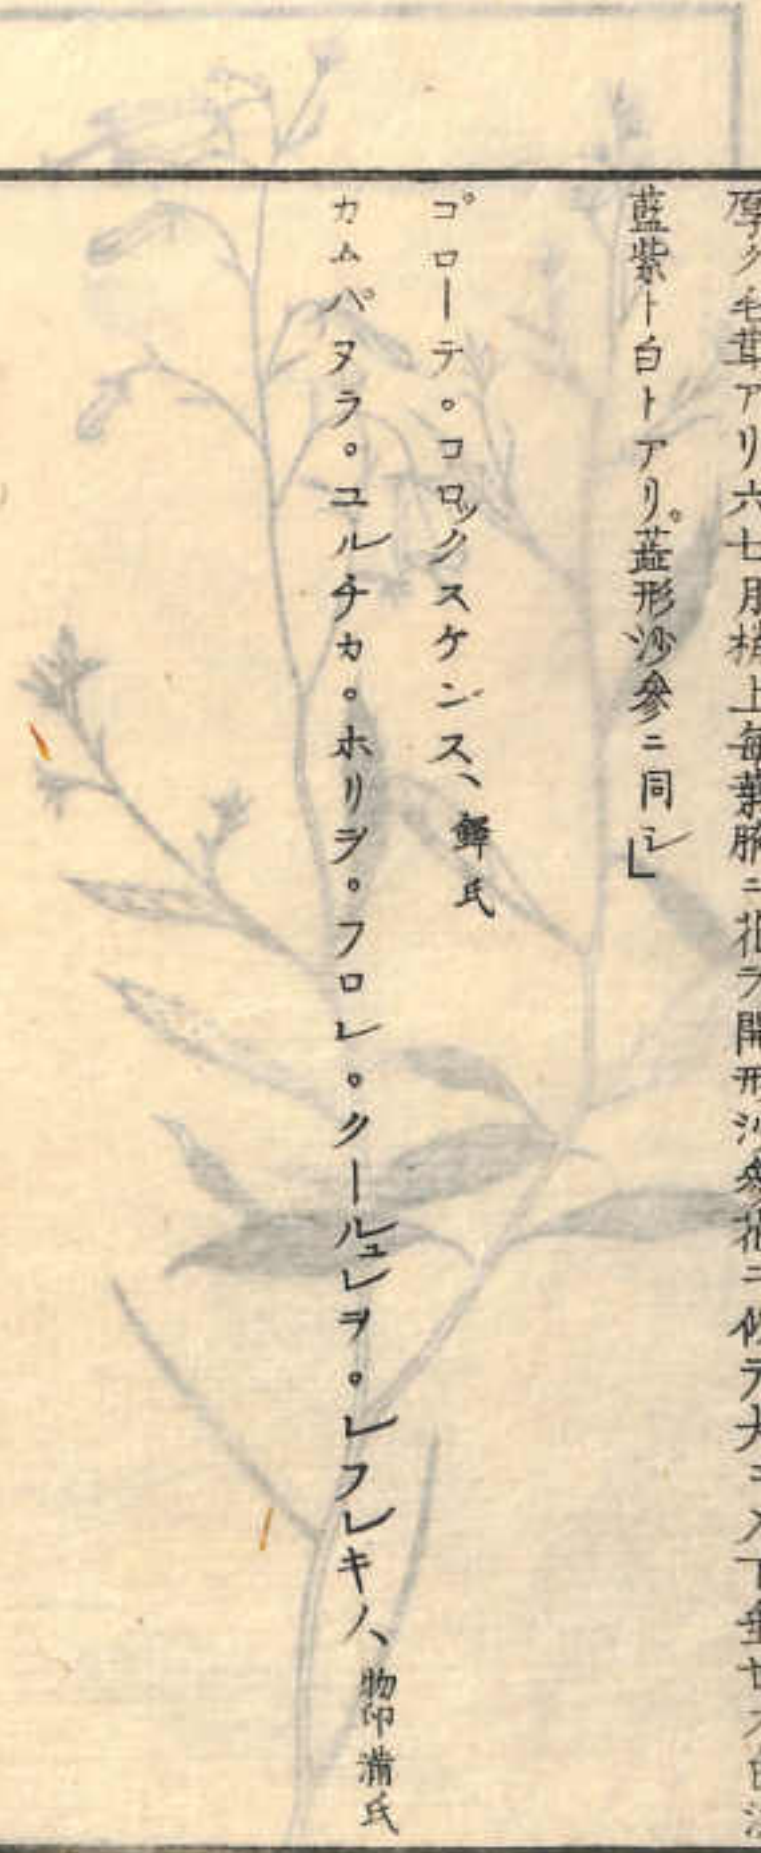 厚ク毛茸アリ六七月梢上毎葉腋ニ花ヲ開形沙參花ニ似テ大ニメ下垂セス白淡
藍紫ト白トアリ。蕋形沙參ニ同シ」
ゴローテ。コロックスケンス、鐸氏
カムパヌラ。ユルチカ。ホリヲ。フロレ。クールュレヲ。レフレキノ、物印滿氏